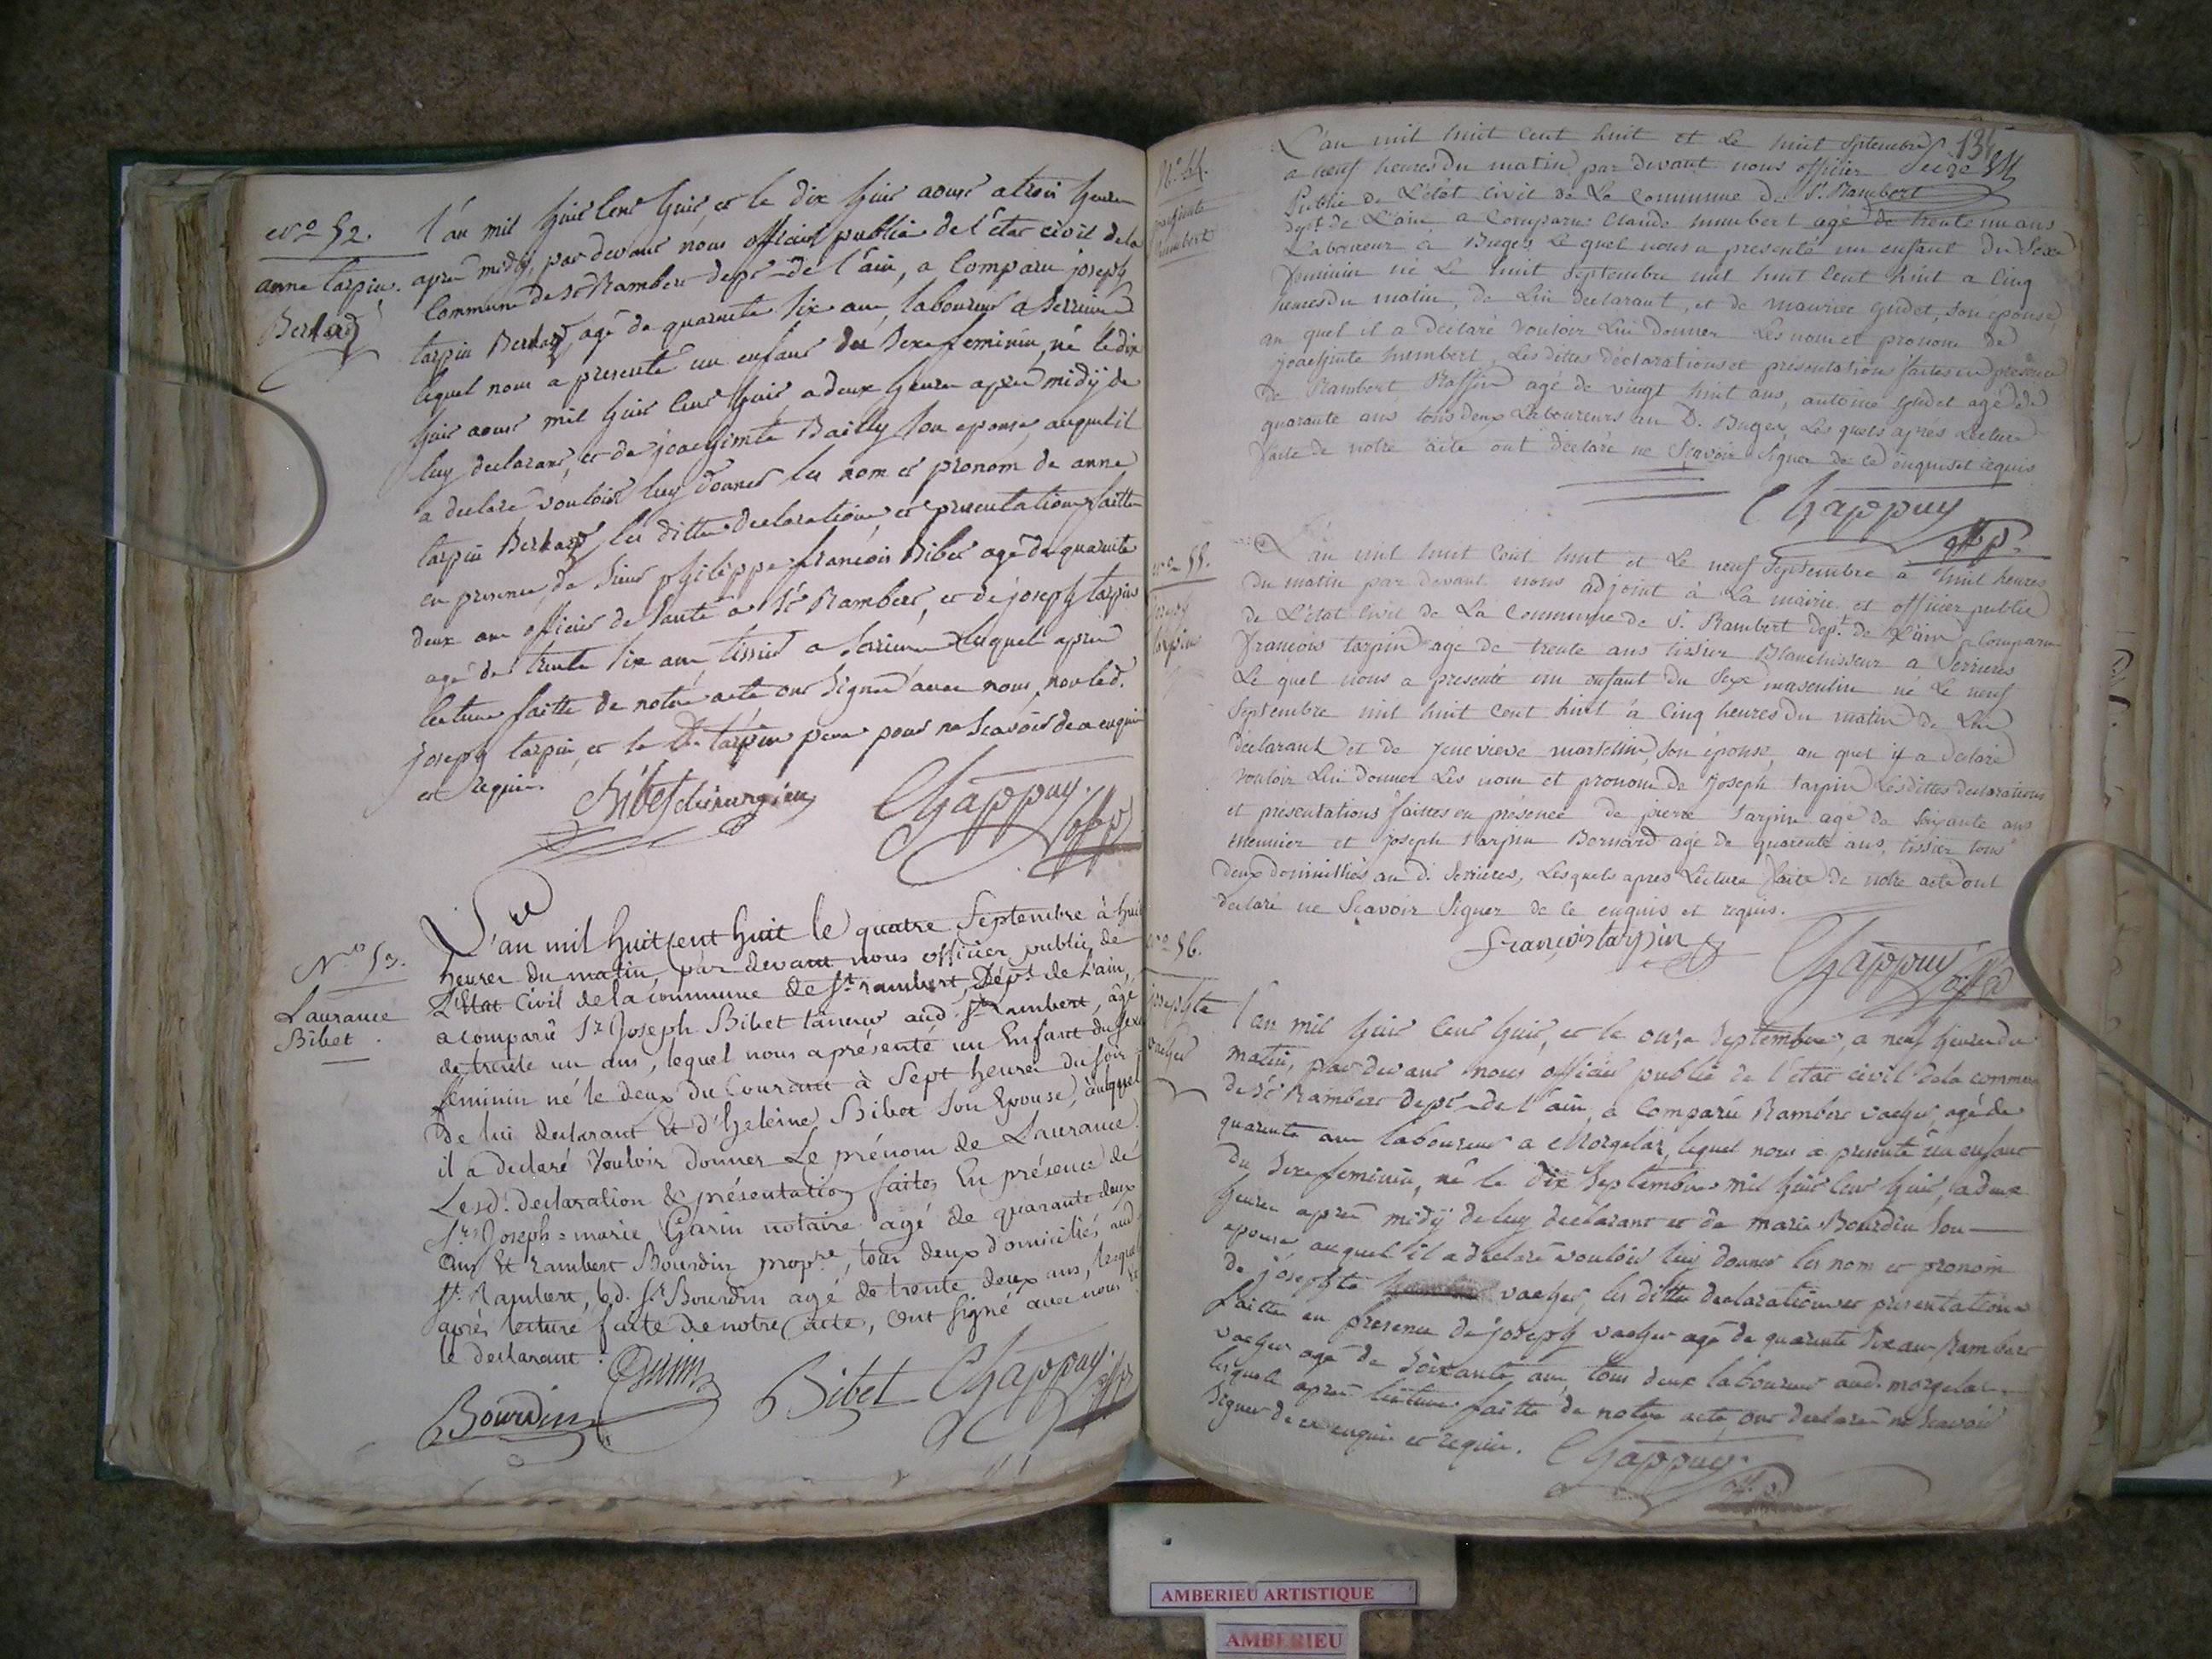 N.o 52.
anne tarpin.
Bernard
L'an mil huit cent huit, et le dix huit aoust a trois heures
apres midy, par devant nous officier public de l'etat civil de la
Commune de St Rambert dept de l'ain, a Comparu joseph
tarpin Bernard, agé de quarente six ans, laboureur a Serrieres
lequel nous a presenté un enfant du Sexe feminin, né le dix
huit aoust mil huit cent huit, a deux heures apres midÿ de
luy declarant, et de joachimte Bailly son epouse, auquel il
a declaré vouloir luy donner les nom et pronom de anne
tarpin Bernard, les dittes declarations et presentations faittes
en presence de Sieur philippe françois Bibet agé de quarente
deux ans officier de Santé a St Rambert, et de joseph tarpin
agé de trente six ans, tissier a Serrieres lequel apres
lecture faitte de notre acte ont signé avec nous, non led.
joseph tarpin, et le Dt tarpin pere pour ne Scavoir de ce enquis
et requis.
Bibet chirurgien Chappuy.
N.o 53.
Laurance
Bibet.
L'an mil huit cent huit le quatre Septembre à huit
heures du matin, par devant nous officier public de
L'Etat Civil de la Commune de St rambert, Dépt de L'ain,
a comparû Sr Joseph Bibet taneur aud. St Rambert, agé
de trente un ans, lequel nous a présenté un Enfant du Sexe
feminin né le deux du Courant à Sept heures du soir
De lui declarant Et d'heleine Bibet Son Epouse, auquel
il a declaré Vouloir donner Le prénom de Laurance.
Lesd. declaration & présentation faites En présence de
Srs Joseph=marie Garin notaire agé de quarante deux
Ans Et rambert Bourdin propre, tous deux domiciliés aud.
St. Rambert, led. Sr Bourdin agé de trente deux ans, lesquels
après lecture faite de notre acte, Ont Signé avec nous Et
le declarant.
Bourdin Bibet Chappuy.
135
N.o 54.
humbert
L'an mil huit cent huit et Le huit Septembre
a neuf heures du matin par devant nous officier
Public de L'état Civil de La Commune de St. Rambert
dept de L'ain a Comparu Claude humbert agé de trente un ans
Laboureur à Buges Le quel nous a presenté un enfant du Sexe
feminin né Le huit Septembre mil huit Cent huit a Cinq
heures du matin, de Lui declarant, et de maurice gudet, son épouse,
au quel il a déclaré vouloir Lui donner Les nom et pronom de
joachinte humbert, Les dittes déclarations et présentations faites en présence
de Rambert Raffin agé de vingt huit ans, antoine gudet agé de
quarante ans tous deux Laboureurs au D. Buges, Les quels après Lecture
faite de notre acte ont déclaré ne Sçavoir Signer de ce enquis et requis
Chappuy
N.o 55.
joseph
tarpin
L'an mil huit Cent huit et Le neuf Septembre a huit heures
du matin par devant nous adjoint à La mairie et officier public
de L'état Civil de La Commune de St. Rambert dept. de L'ain a Comparu
François tarpin agé de trente ans tissier Blanchisseur a Serrieres
Le quel nous a presenté un enfant du Sexe masculin né Le neuf
Septembre mil huit Cent huit a Cinq heures du matin de Lui
déclarant et de Jenevieve martelin, Son épouse, au quel il a declaré
vouloir Lui donner Les nom et pronom de Joseph tarpin Les dittes declarations
et présentations faittes en présence de pierre tarpin agé de Soixante ans
meunier et Joseph tarpin Bernard agé de quarente ans, tissier tous
deux domiciliés au d. Serrieres, Lesquels apres Lecture faite de notre acte ont
declaré ne Sçavoir Signer de ce enquis et requis.
françois tarpin Chappuy
N.o 56.
josephte
vacher
L'an mil huit cent huit, et le onze Septembre, a neuf heures du
matin, par devant nous officier public de l'etat civil de la commune
de St Rambert dept de l'ain, a Comparu Rambert vacher, agé de
quarente ans laboureur a Morgelas, lequel nous a presenté un enfant
du Sexe feminin, né le dix Septembre mil huit cent huit, a deux
heures apres midÿ de luy declarant et de marie Bourdin son
epouse, auquel il a declaré vouloir luy donner les nom et pronom
de josephte vacher, les dittes declarations et presentations
faittes en presence de joseph vacher agé de quarente six ans Rambert
vacher agé de Soixante ans, tous deux laboureurs aud. morgelas,
lesquels apres lecture faitte de notre acte, ont declaré ne Scavoir
Signer de ce enquis et requis. Chappuy.
AMBERIEU ARTISTIQUE
AMBERIEU